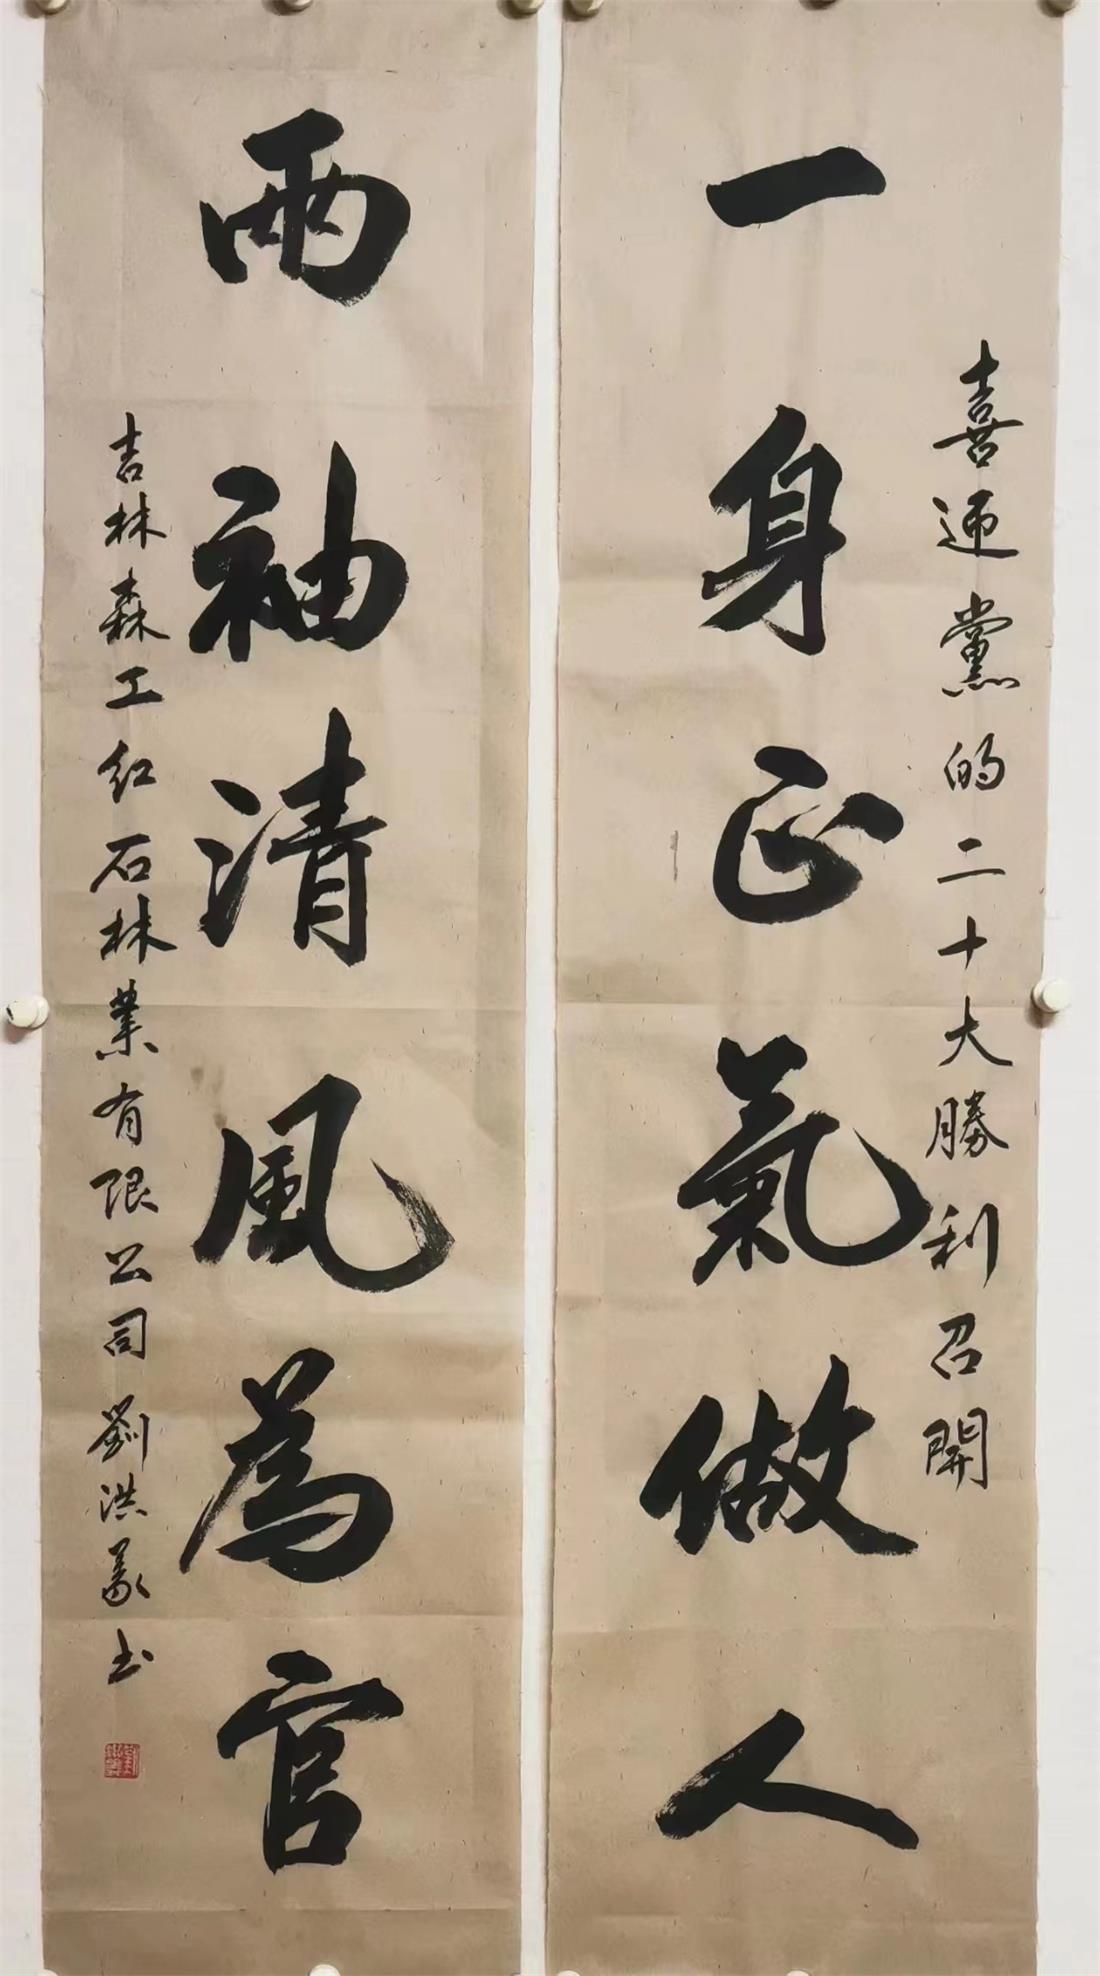 喜迎黨的二十大勝利召開
一身正氣做人
兩袖清風為官
吉林森工红石林業有限公司劉洪義书